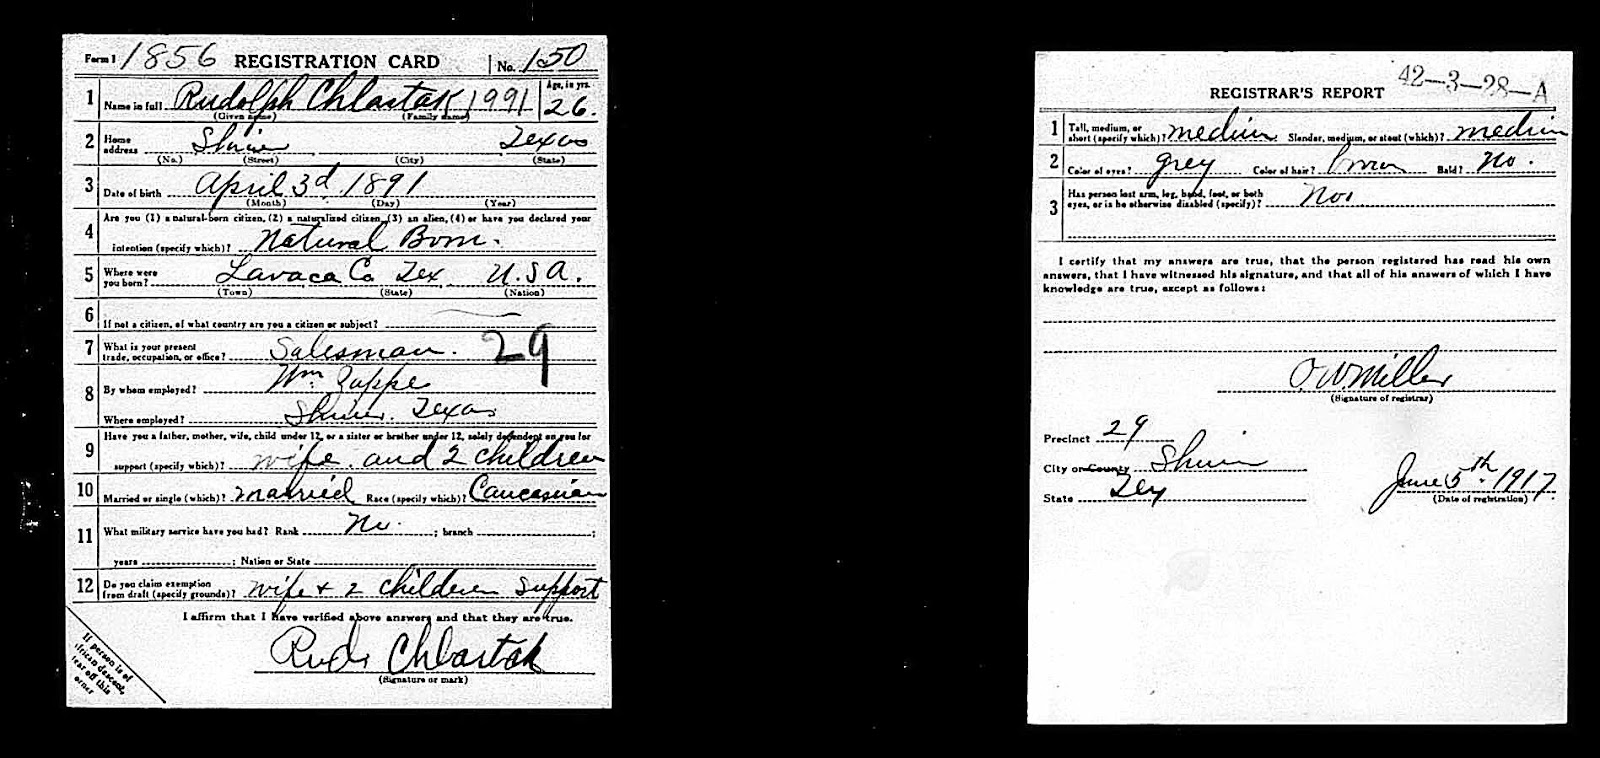 Form 1 1856 REGISTRATION CARD No. 150
1 Name in full Rudolph Chlastak 1991 Age, in yrs. 26.
(Given name) (Family name)
2 Home address Shiner Texas
(No.) (Street) (City) (State)
3 Date of birth April 3d 1891
(Month) (Day) (Year)
4 Are you (1) a natural-born citizen, (2) a naturalized citizen, (3) an alien, (4) or have you declared your
intention (specify which)? Natural Born.
5 Where were you born? Lavaca Co Tex U.S.A.
(Town) (State) (Nation)
6 If not a citizen, of what country are you a citizen or subject?
7 What is your present trade, occupation, or office? Salesman. 29
8 By whom employed? Wm Zuppe
Where employed? Shiner. Texas
9 Have you a father, mother, wife, child under 12, or a sister or brother under 12, solely dependent on you for
support (specify which)? wife and 2 children
10 Married or single (which)? married Race (specify which)? Caucasian
11 What military service have you had? Rank No. ; branch ;
years ; Nation or State
12 Do you claim exemption from draft (specify grounds)? wife + 2 children support
I affirm that I have verified above answers and that they are true.
Rud Chlastak
(Signature or mark)
If person is of
African descent,
tear off this
corner
42-3-28-A
REGISTRAR'S REPORT
1 Tall, medium, or short (specify which)? medium Slender, medium, or stout (which)? medium
2 Color of eyes? grey Color of hair? brown Bald? No.
3 Has person lost arm, leg, hand, foot, or both
eyes, or is he otherwise disabled (specify)?
I certify that my answers are true, that the person registered has read his own
answers, that I have witnessed his signature, and that all of his answers of which I have
knowledge are true, except as follows:
O.W. Miller
(Signature of registrar)
Precinct 29
City or County Shiner
State Tex
June 5th 1917
(Date of registration)